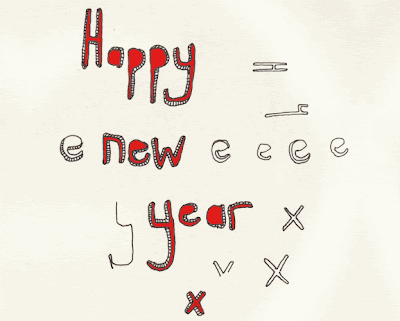 Happy
e new e e e e
y year x
v x
x